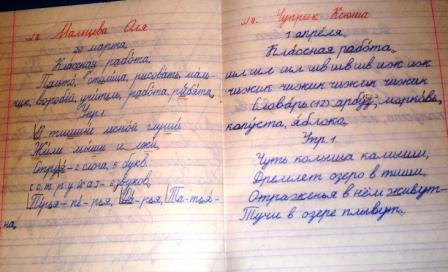 Мальцева Оля
20 марта.
Классная работа.
Пальто, столица, рисовать, маль-
чик, воробей, учитель, работа, ребята.
Упр.1
В тишине лесной глуши
Жили мыши и ежи.
2 слога, 5 букв.
5 звуков.
Перья - пе - рья, Да - рья, Та - тья -
на.
Чуприк Ксюша
1 апреля.
Классная работа.
шл шл шл шв шв шв иж иж
чижик чижик чижик чижик
Словарь (12) арбуз, морковь,
капуста, яблоко.
Упр. 1
Чуть колыша камыши,
Дремлет озеро в тиши
Отраженья в нём живут -
Тучи в озере плывут.